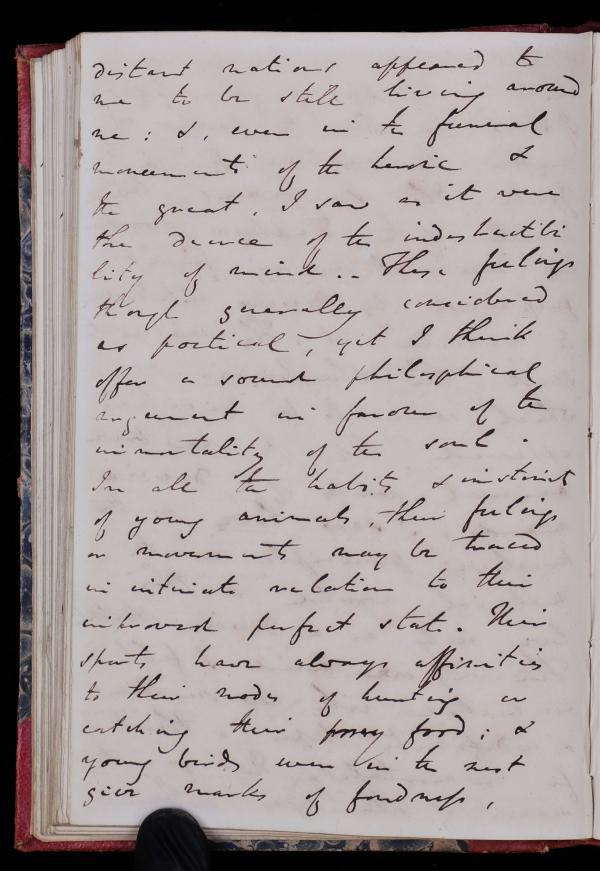 distant nations appeared to
me to be still living around
me: &, even in the funeral
monuments of the heroic &
the great, I saw as it were
the decree of the indestructibi
lity of mind. _ These feelings
though generally considered
as poetical, yet I think
offer a sound philosophical
argument in favour of the
immortality of the soul.
In all the habits & instincts
of young animals, their feelings
or movements may be traced
in intimate relation to their
improved perfect state. Their
sports have always affinities
to their modes of hunting or
catching their food; &
young birds even in the nest
give marks of fondness,